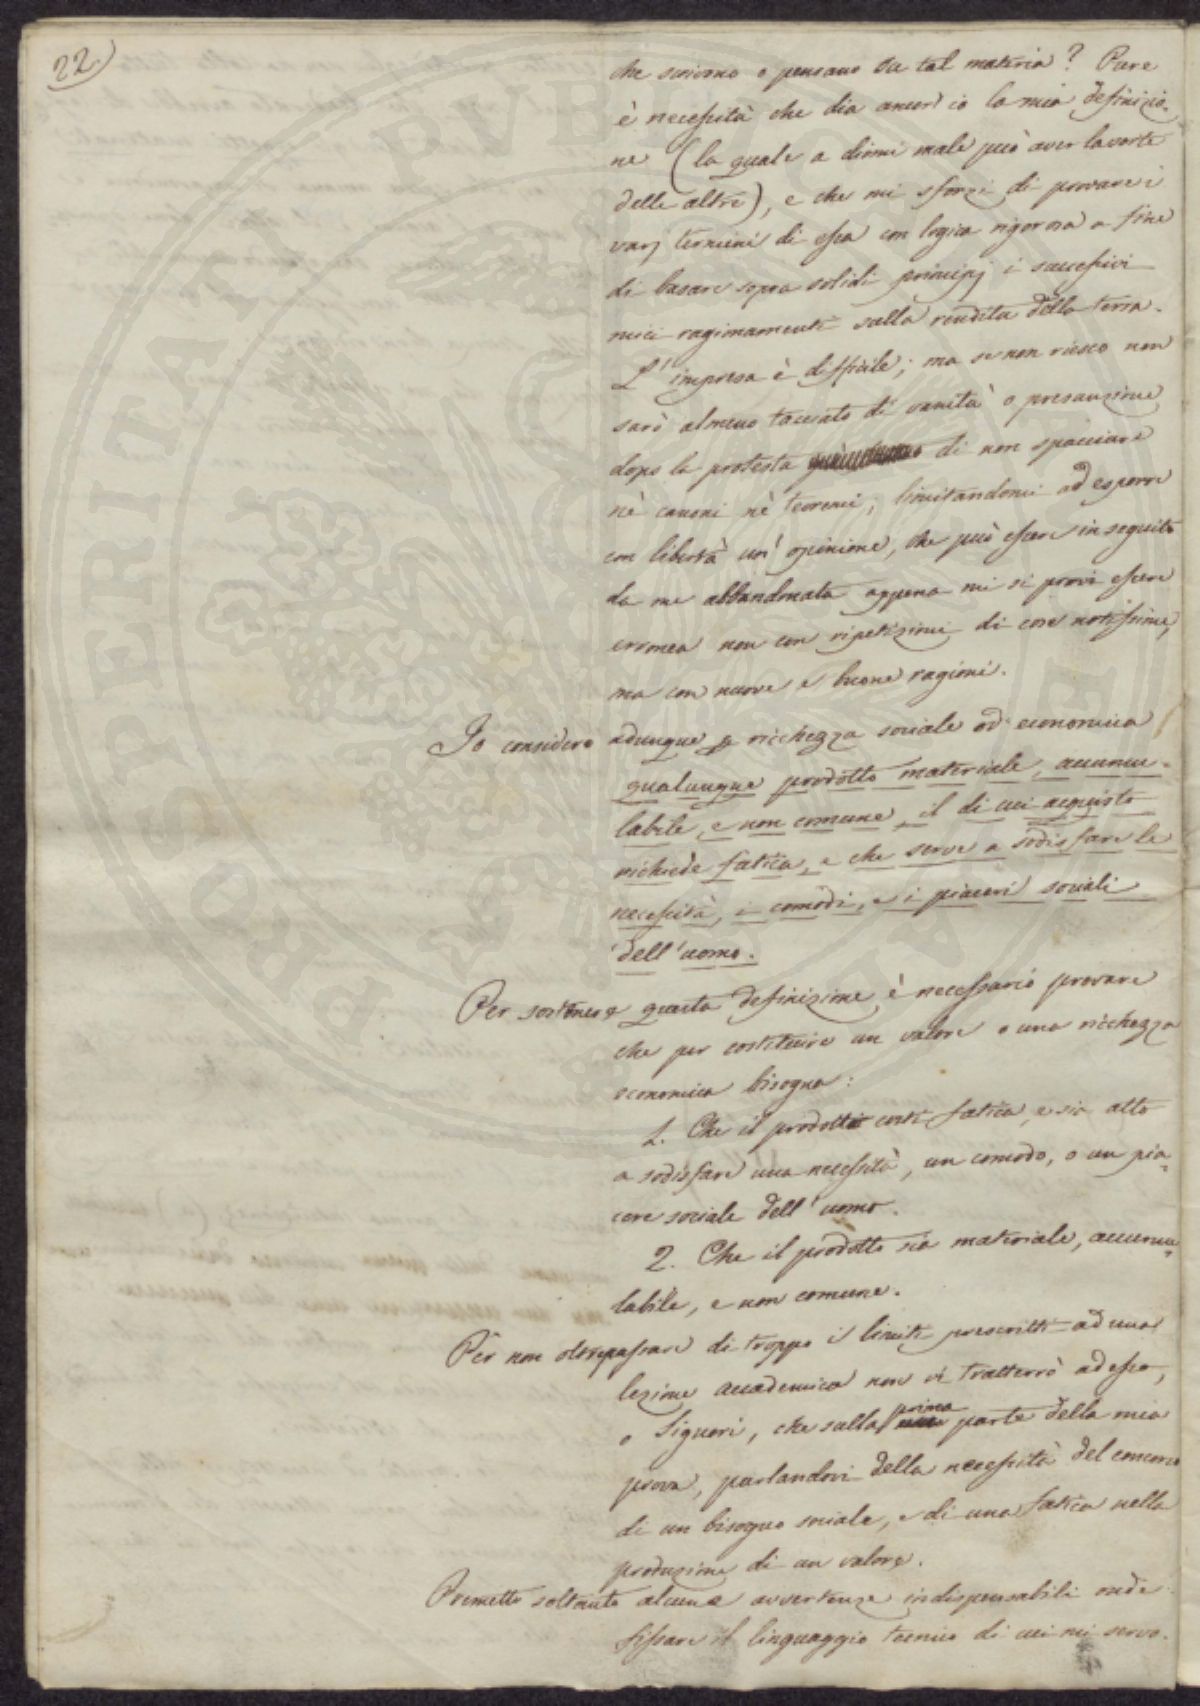 22.)
che scrivono o pensano su tal materia? Pure
è necessità che dia ancor io la mia definizio-
ne (la quale a dirmi male può aver la sorte
delle altre), e che mi sforzi di provare i
varj termini di essa con logica rigorosa a fine
di basare sopra solidi principj i successivi
miei ragionamenti sulla rendita della terra.
L'impresa è difficile; ma se non riesco non
sarò almeno tacciato di vanità o presunzione
dopo la protesta di non spacciare
nè canoni nè teoremi, limitandomi ad esporre
con libertà un' opinione, che può essere in seguito
da me abbandonata appena mi si provi essere
erronea non con ripetizioni di cose notissime,
ma con nuove e buone ragioni.
Io considero adunque ricchezza sociale od economica
qualunque prodotto materiale, accumu-
labile, e non comune, il di cui acquisto
richiede fatica, e che serve a sodisfare le
necessità, i comodi, e i piaceri sociali
dell'uomo.
Per sostenere questa definizione è necessario provare
che per costituire un valore o una ricchezza
economica bisogna:
1. Che il prodotto costi fatica, e sia atto
a sodisfare una necessità, un comodo, o un pia-
cere sociale dell'uomo.
2. Che il prodotto sia materiale, accumu-
labile, e non comune.
Per non oltrepassare di troppo i limiti prescritti ad una
lezione accademica non vi tratterrò adesso,
o Signori, che sulla prima parte della mia
prova, parlandovi della necessità del concorso
di un bisogno sociale, e di una fatica nella
produzione di un valore.
Premetto soltanto alcune avvertenze indispensabili onde
fissare il linguaggio tecnico di cui mi servo.
PROSPERITATI PVBLICAE AVGENDAE